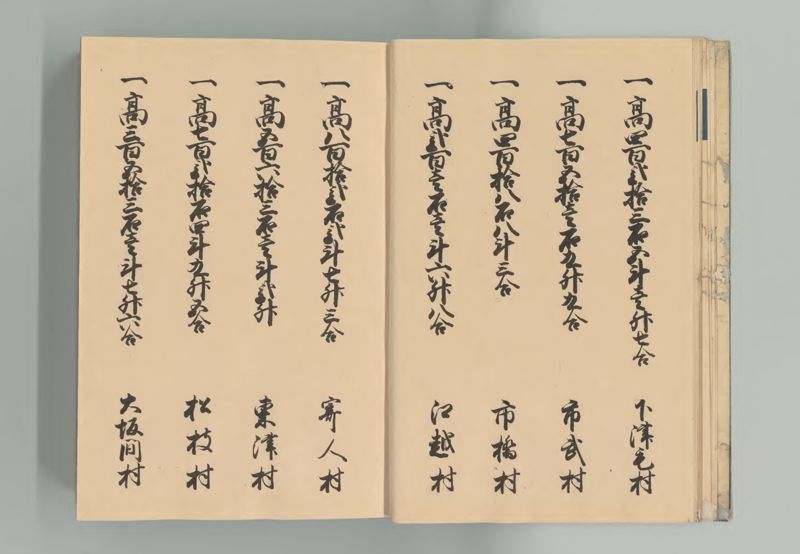 一高四百弐拾三石五斗壱升七合 下津毛村
一高七百五拾壱石九升九合 市武村
一高四百拾八石八斗三合 市橋村
一高弐百壱石壱斗六升八合 江越村
一高八百拾弐石弐斗七升三合 寄人村
一高五百六拾三石壱斗弐升 東津村
一高七百弐拾石四斗九升五合 松枝村
一高三百五拾三石壱斗七升六合 大坂間村